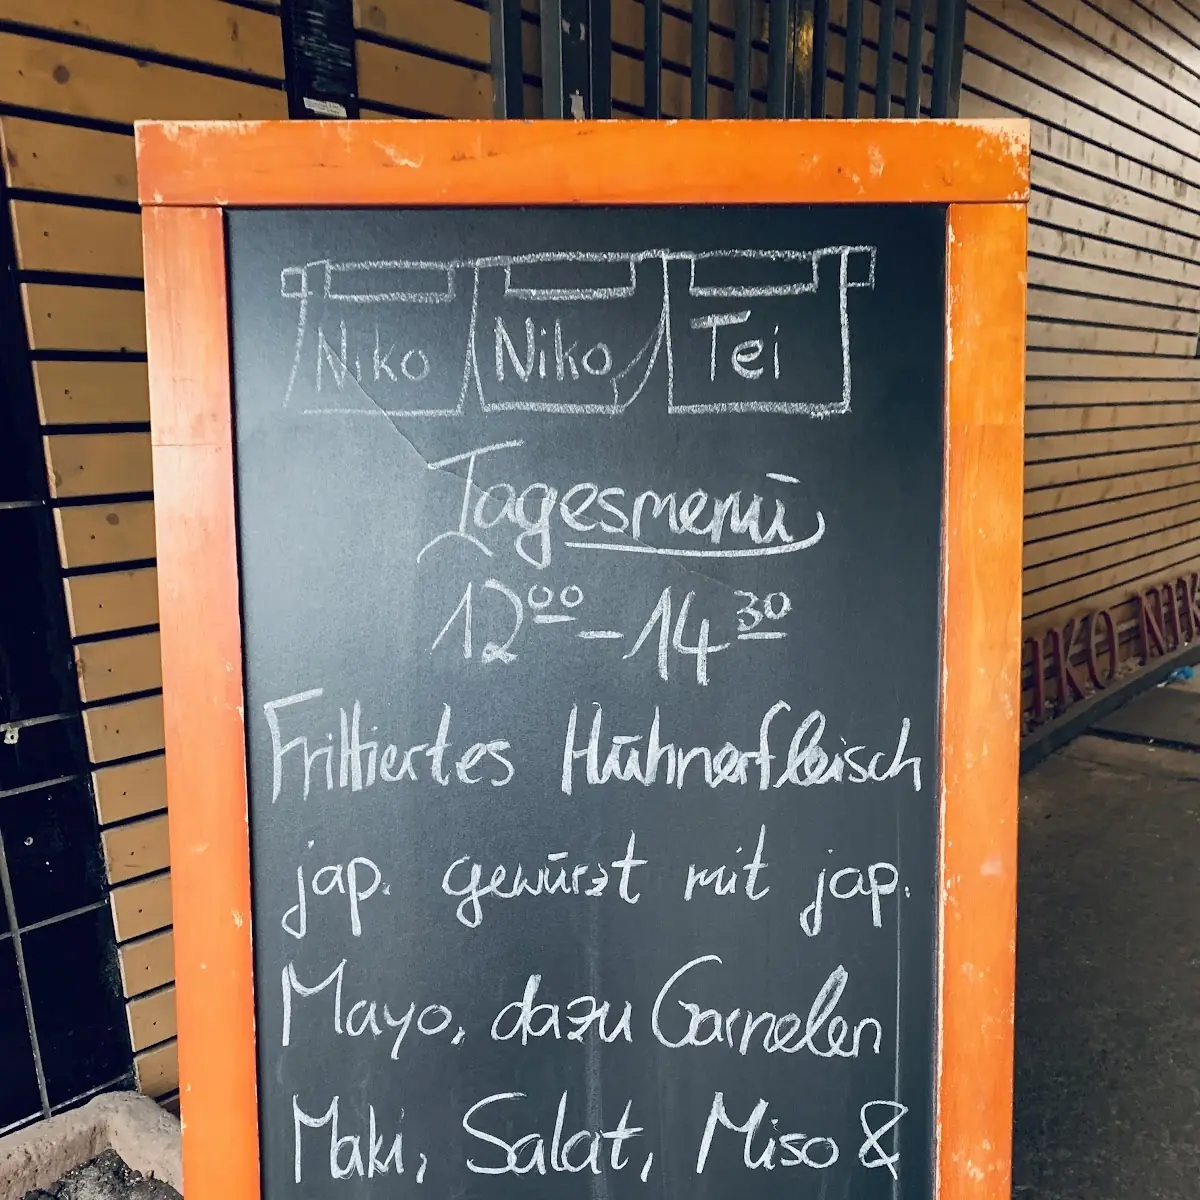 Niko Niko Tei
Tagesmenü
12⁰⁰ – 14³⁰
Frittiertes Hühnerfleisch
jap. gewürzt mit jap.
Mayo, dazu Garnelen
Maki, Salat, Miso &
IKO NIK